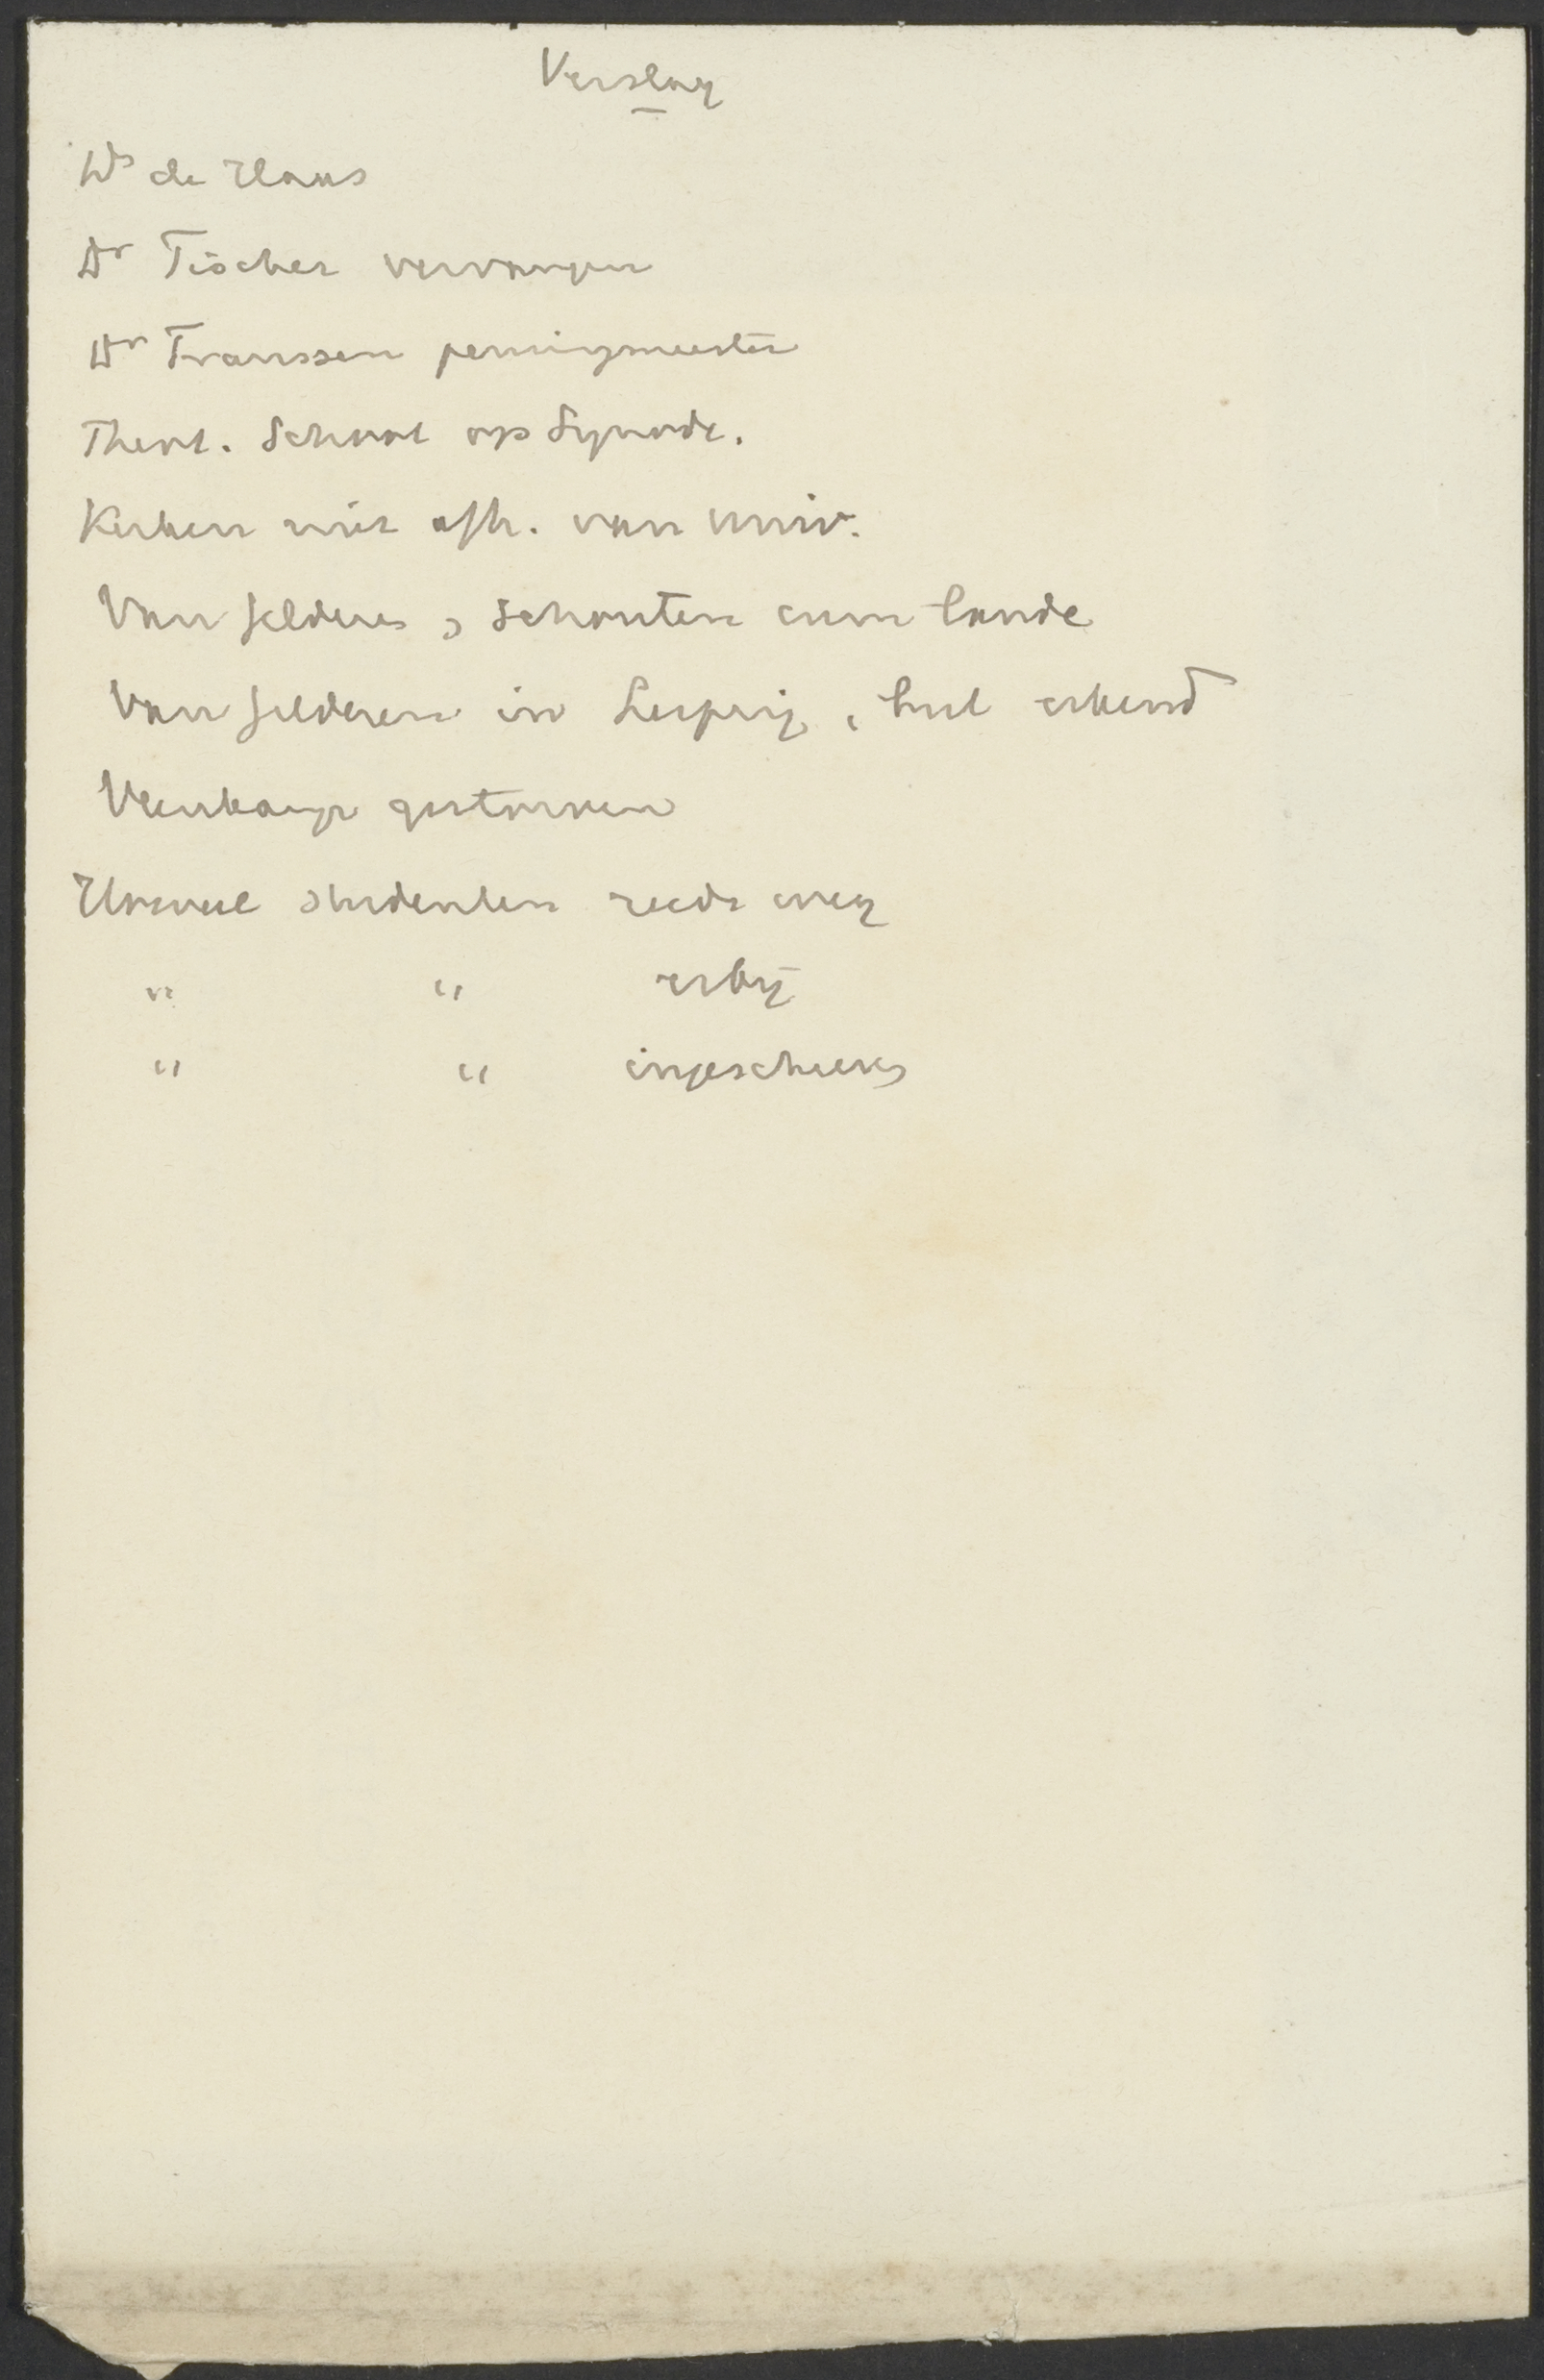 Verslag
Ds de Haas
Dr Fischer vervangen
Dr Franssen penningmeester
Theol. School op Synode.
Kerken niet afh. van Univ.
Van Gelderen, Schouten cum laude
Van Gelderen in Leipzig, hul erkend
Veenkamp gestorven
Hoeveel studenten reeds weg
" " erbij
" " ingeschreven